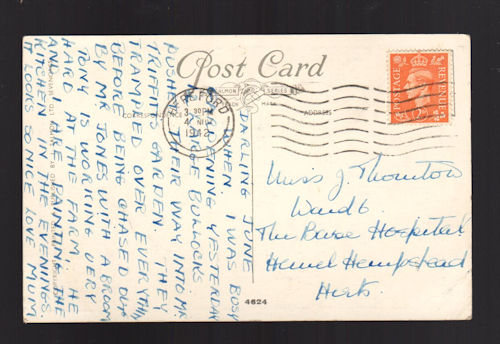 Post Card
SALMON SERIES
MARK
CORRESPONDENCE
ADDRESS
POSTAGE
REVENUE
3.30PM
4 NOV
1942
DARLING JUNE
WHEN I WAS BUSY
GARDENING YESTERDAY
LARGE BULLOCKS
PUSHED THEIR WAY INTO MR
GARDEN. THEY
TRAMPED OVER EVERYTHING
BEFORE BEING CHASED OUT
BY MR JONES WITH A BROOM
TONY IS WORKING VERY
HARD AT THE FARM. HE
AND I ARE PAINTING THE
KITCHEN IN THE EVENINGS
IT LOOKS SO NICE LOVE MUM
Miss J. Thornton
Ward 6
The Base Hospital
Hemel Hempstead
Herts.
4624